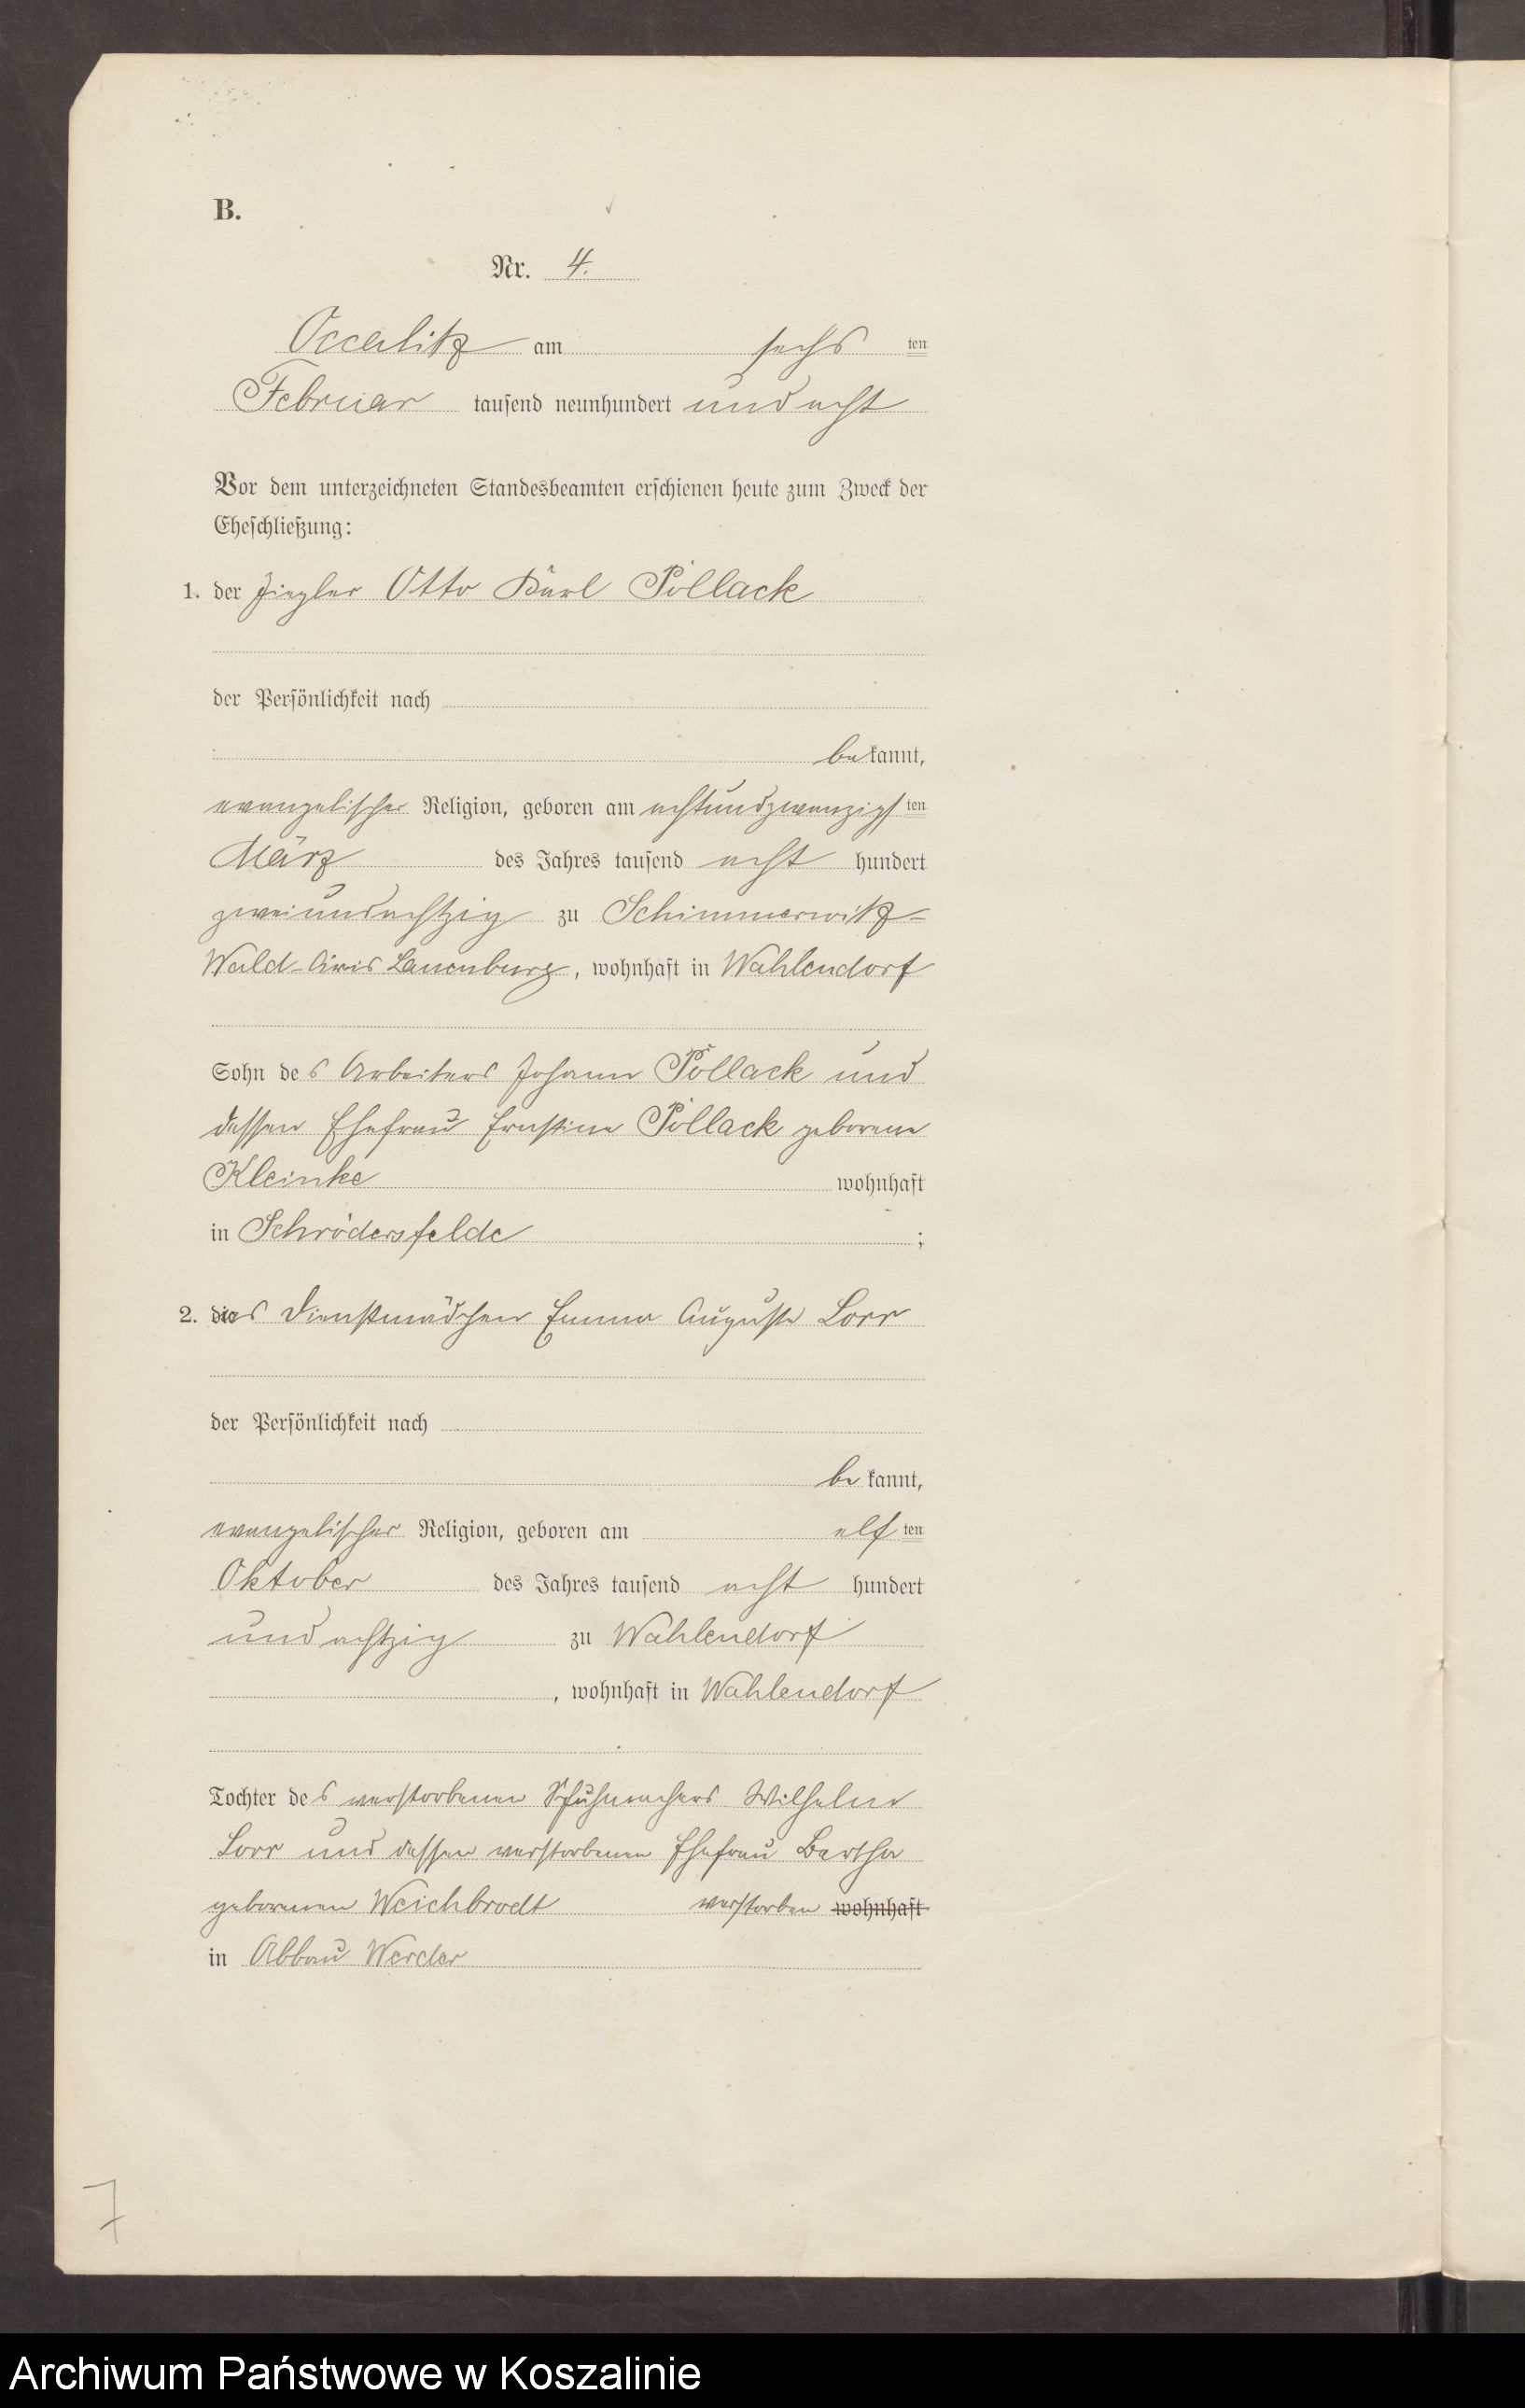 B.
Nr. 4.
Occalitz am sechsten
Februar tausend neunhundert und acht
Vor dem unterzeichneten Standesbeamten erschienen heute zum Zweck der
Eheschließung:
1. der Ziegler Otto Karl Pollack
der Persönlichkeit nach
bekannt,
evangelischer Religion, geboren am achtundzwanzigsten
März des Jahres tausend acht hundert
zweiundachtzig zu Schimmerwitz-
Wald Kreis Lauenburg, wohnhaft in Wahlendorf
Sohn des Arbeiters Johann Pollack und
dessen Ehefrau Ernstine Pollack geborene
Kleinke wohnhaft
in Schrödersfelde ;
2. das Dienstmädchen Emma Auguste Lorr
der Persönlichkeit nach
bekannt,
evangelischer Religion, geboren am elften
Oktober des Jahres tausend acht hundert
und achtzig zu Wahlendorf
, wohnhaft in Wahlendorf
Tochter des verstorbenen Schuhmachers Wilhelm
Lorr und dessen verstorbenen Ehefrau Bertha
geborenen Weichbrodt verstorben wohnhaft
in Abbau Werder
7
Archiwum Państwowe w Koszalinie